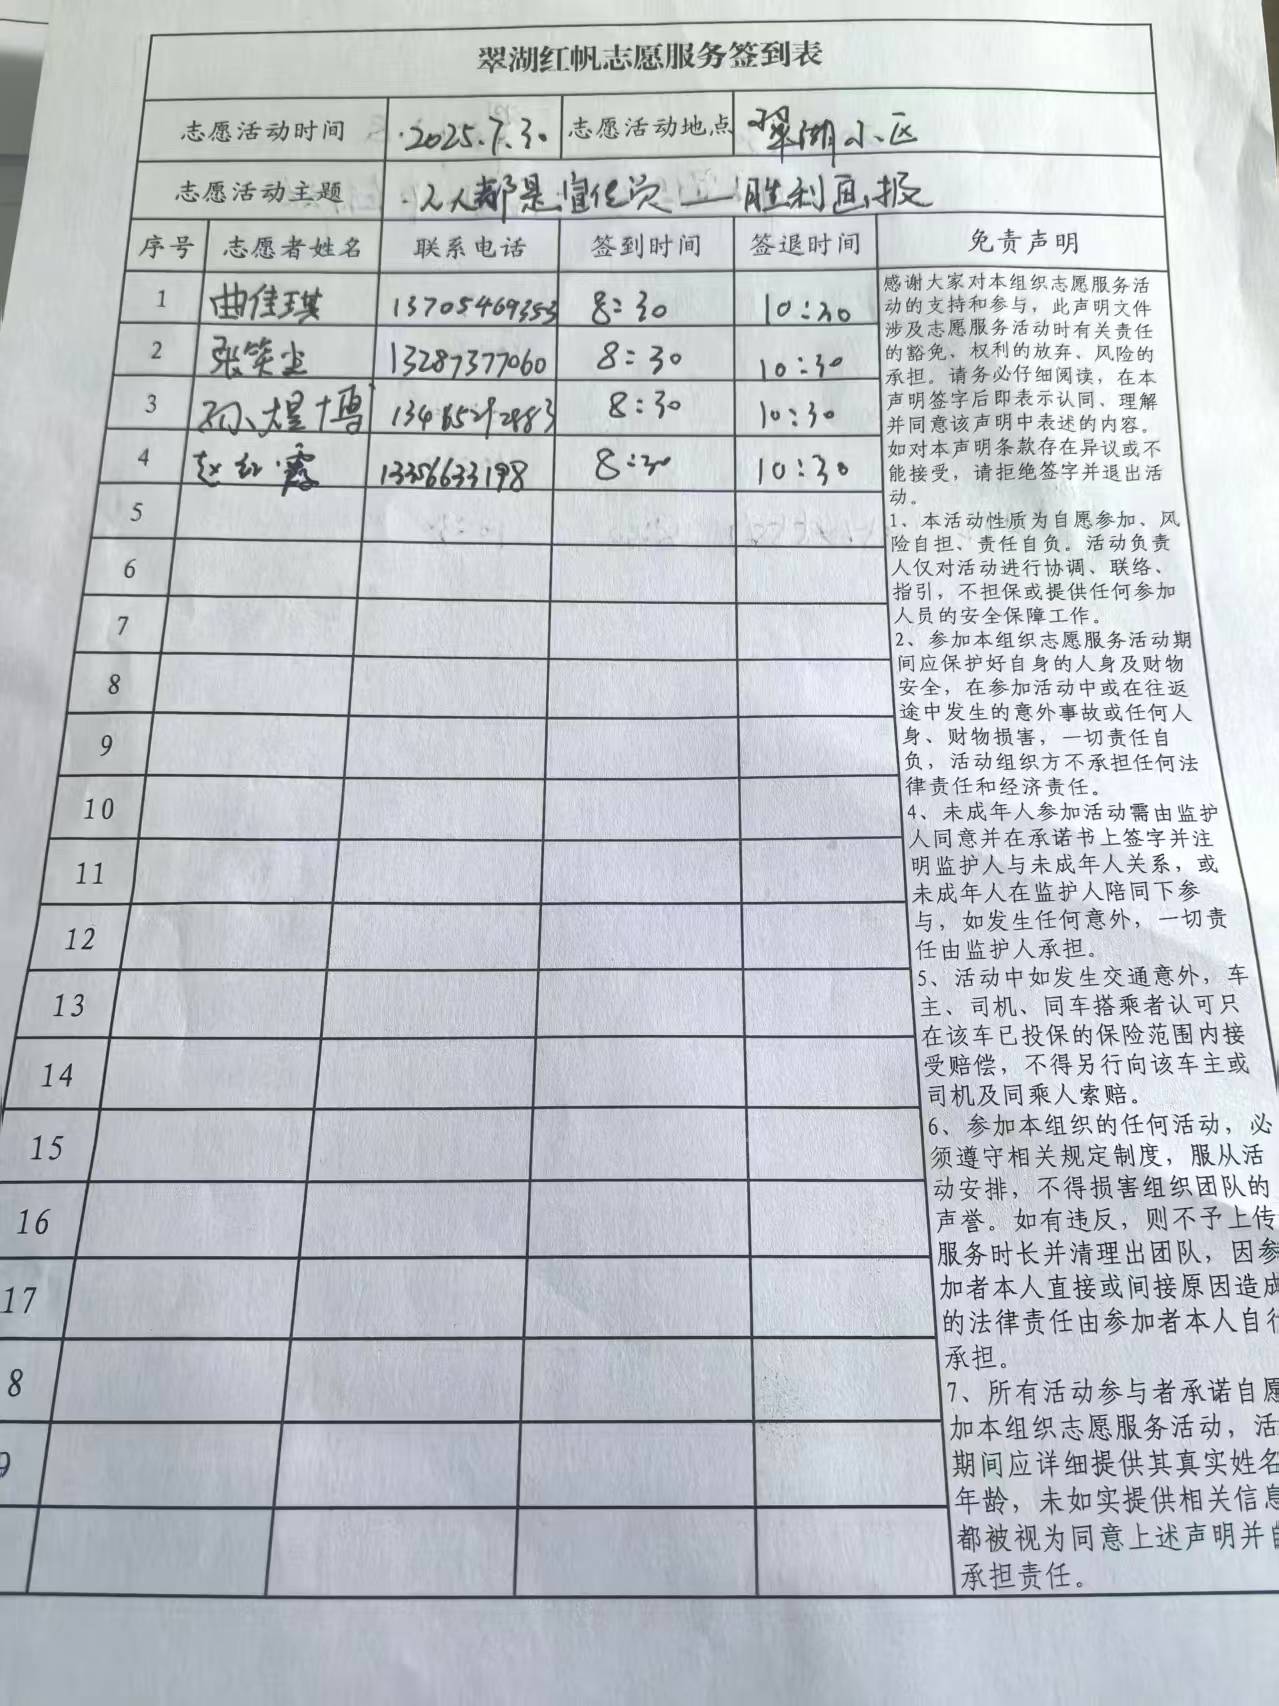 翠湖红帆志愿服务签到表
志愿活动时间 2025.7.30 志愿活动地点 翠湖小区
志愿活动主题 人人都是宣传员——胜利画报
序号 志愿者姓名 联系电话 签到时间 签退时间 免责声明
1 曲佳琪 13705469353 8:30 10:30
2 张笑尘 13287377060 8:30 10:30
3 孙煜博 8:30 10:30
4 赵红霞 13356633198 8:30 10:30
5
6
7
8
9
10
11
12
13
14
15
16
17
8
9
感谢大家对本组织志愿服务活
动的支持和参与，此声明文件
涉及志愿服务活动时有关责任
的豁免、权利的放弃、风险的
承担。请务必仔细阅读，在本
声明签字后即表示认同、理解
并同意该声明中表述的内容。
如对本声明条款存在异议或不
能接受，请拒绝签字并退出活
动。
1、本活动性质为自愿参加、风
险自担、责任自负。活动负责
人仅对活动进行协调、联络、
指引，不担保或提供任何参加
人员的安全保障工作。
2、参加本组织志愿服务活动期
间应保护好自身的人身及财物
安全，在参加活动中或在往返
途中发生的意外事故或任何人
身、财物损害，一切责任自
负，活动组织方不承担任何法
律责任和经济责任。
4、未成年人参加活动需由监护
人同意并在承诺书上签字并注
明监护人与未成年人关系，或
未成年人在监护人陪同下参
与，如发生任何意外，一切责
任由监护人承担。
5、活动中如发生交通意外，车
主、司机、同车搭乘者认可只
在该车已投保的保险范围内接
受赔偿，不得另行向该车主或
司机及同乘人索赔。
6、参加本组织的任何活动，必
须遵守相关规定制度，服从活
动安排，不得损害组织团队的
声誉。如有违反，则不予上传
服务时长并清理出团队，因参
加者本人直接或间接原因造成
的法律责任由参加者本人自行
承担。
7、所有活动参与者承诺自愿
加本组织志愿服务活动，活
期间应详细提供其真实姓名
年龄，未如实提供相关信息
都被视为同意上述声明并自
承担责任。